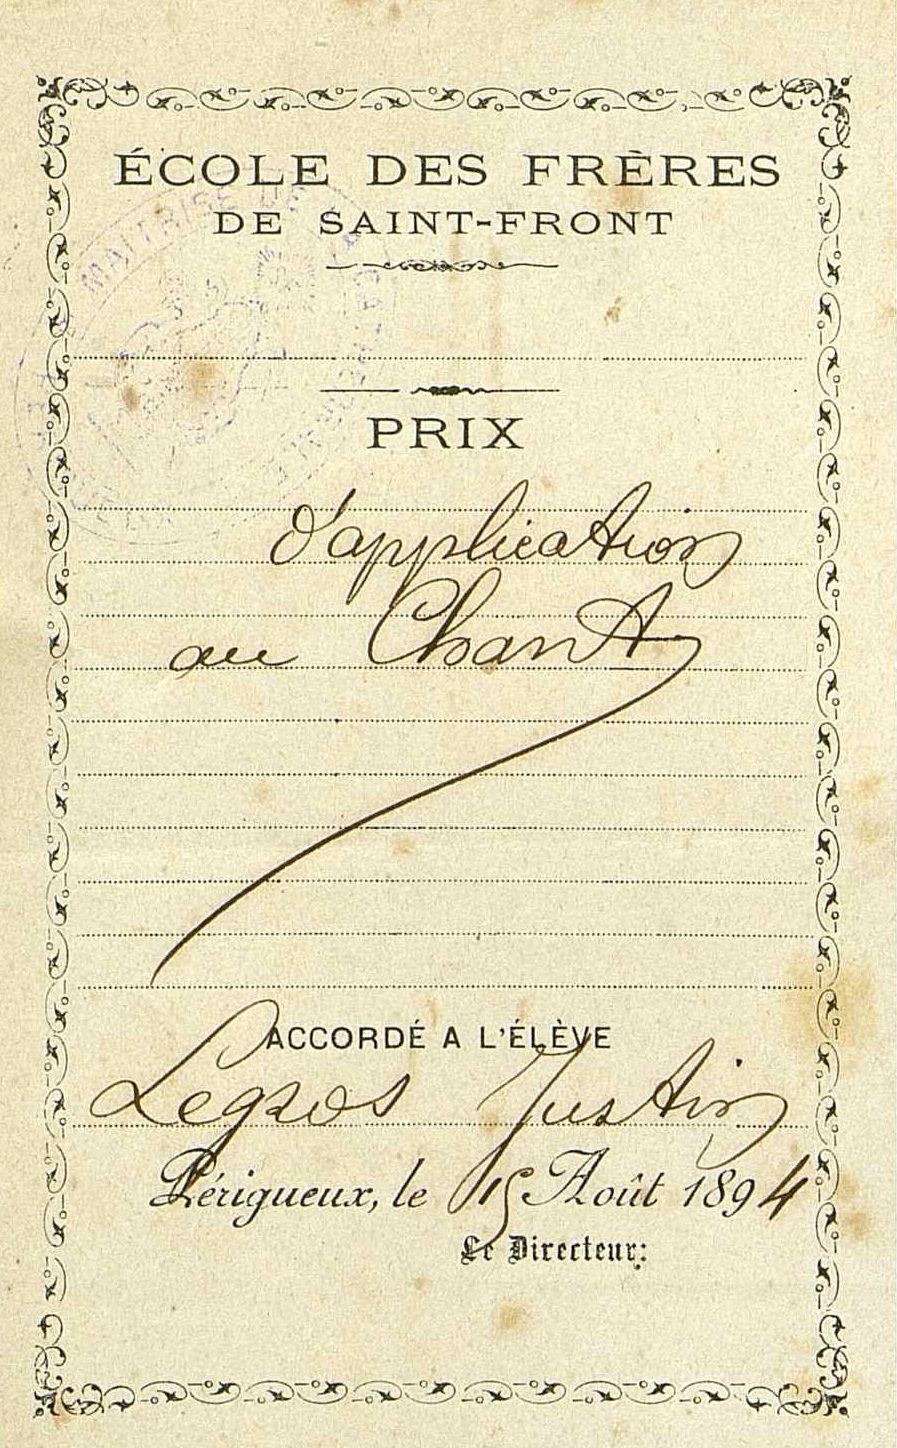 ÉCOLE DES FRÈRES
DE SAINT-FRONT
MAITRISE DE
PRIX
d'application
au Chant
ACCORDÉ A L'ÉLÈVE
Legros Justin
Périgueux, le 15 Août 1894
Le Directeur: